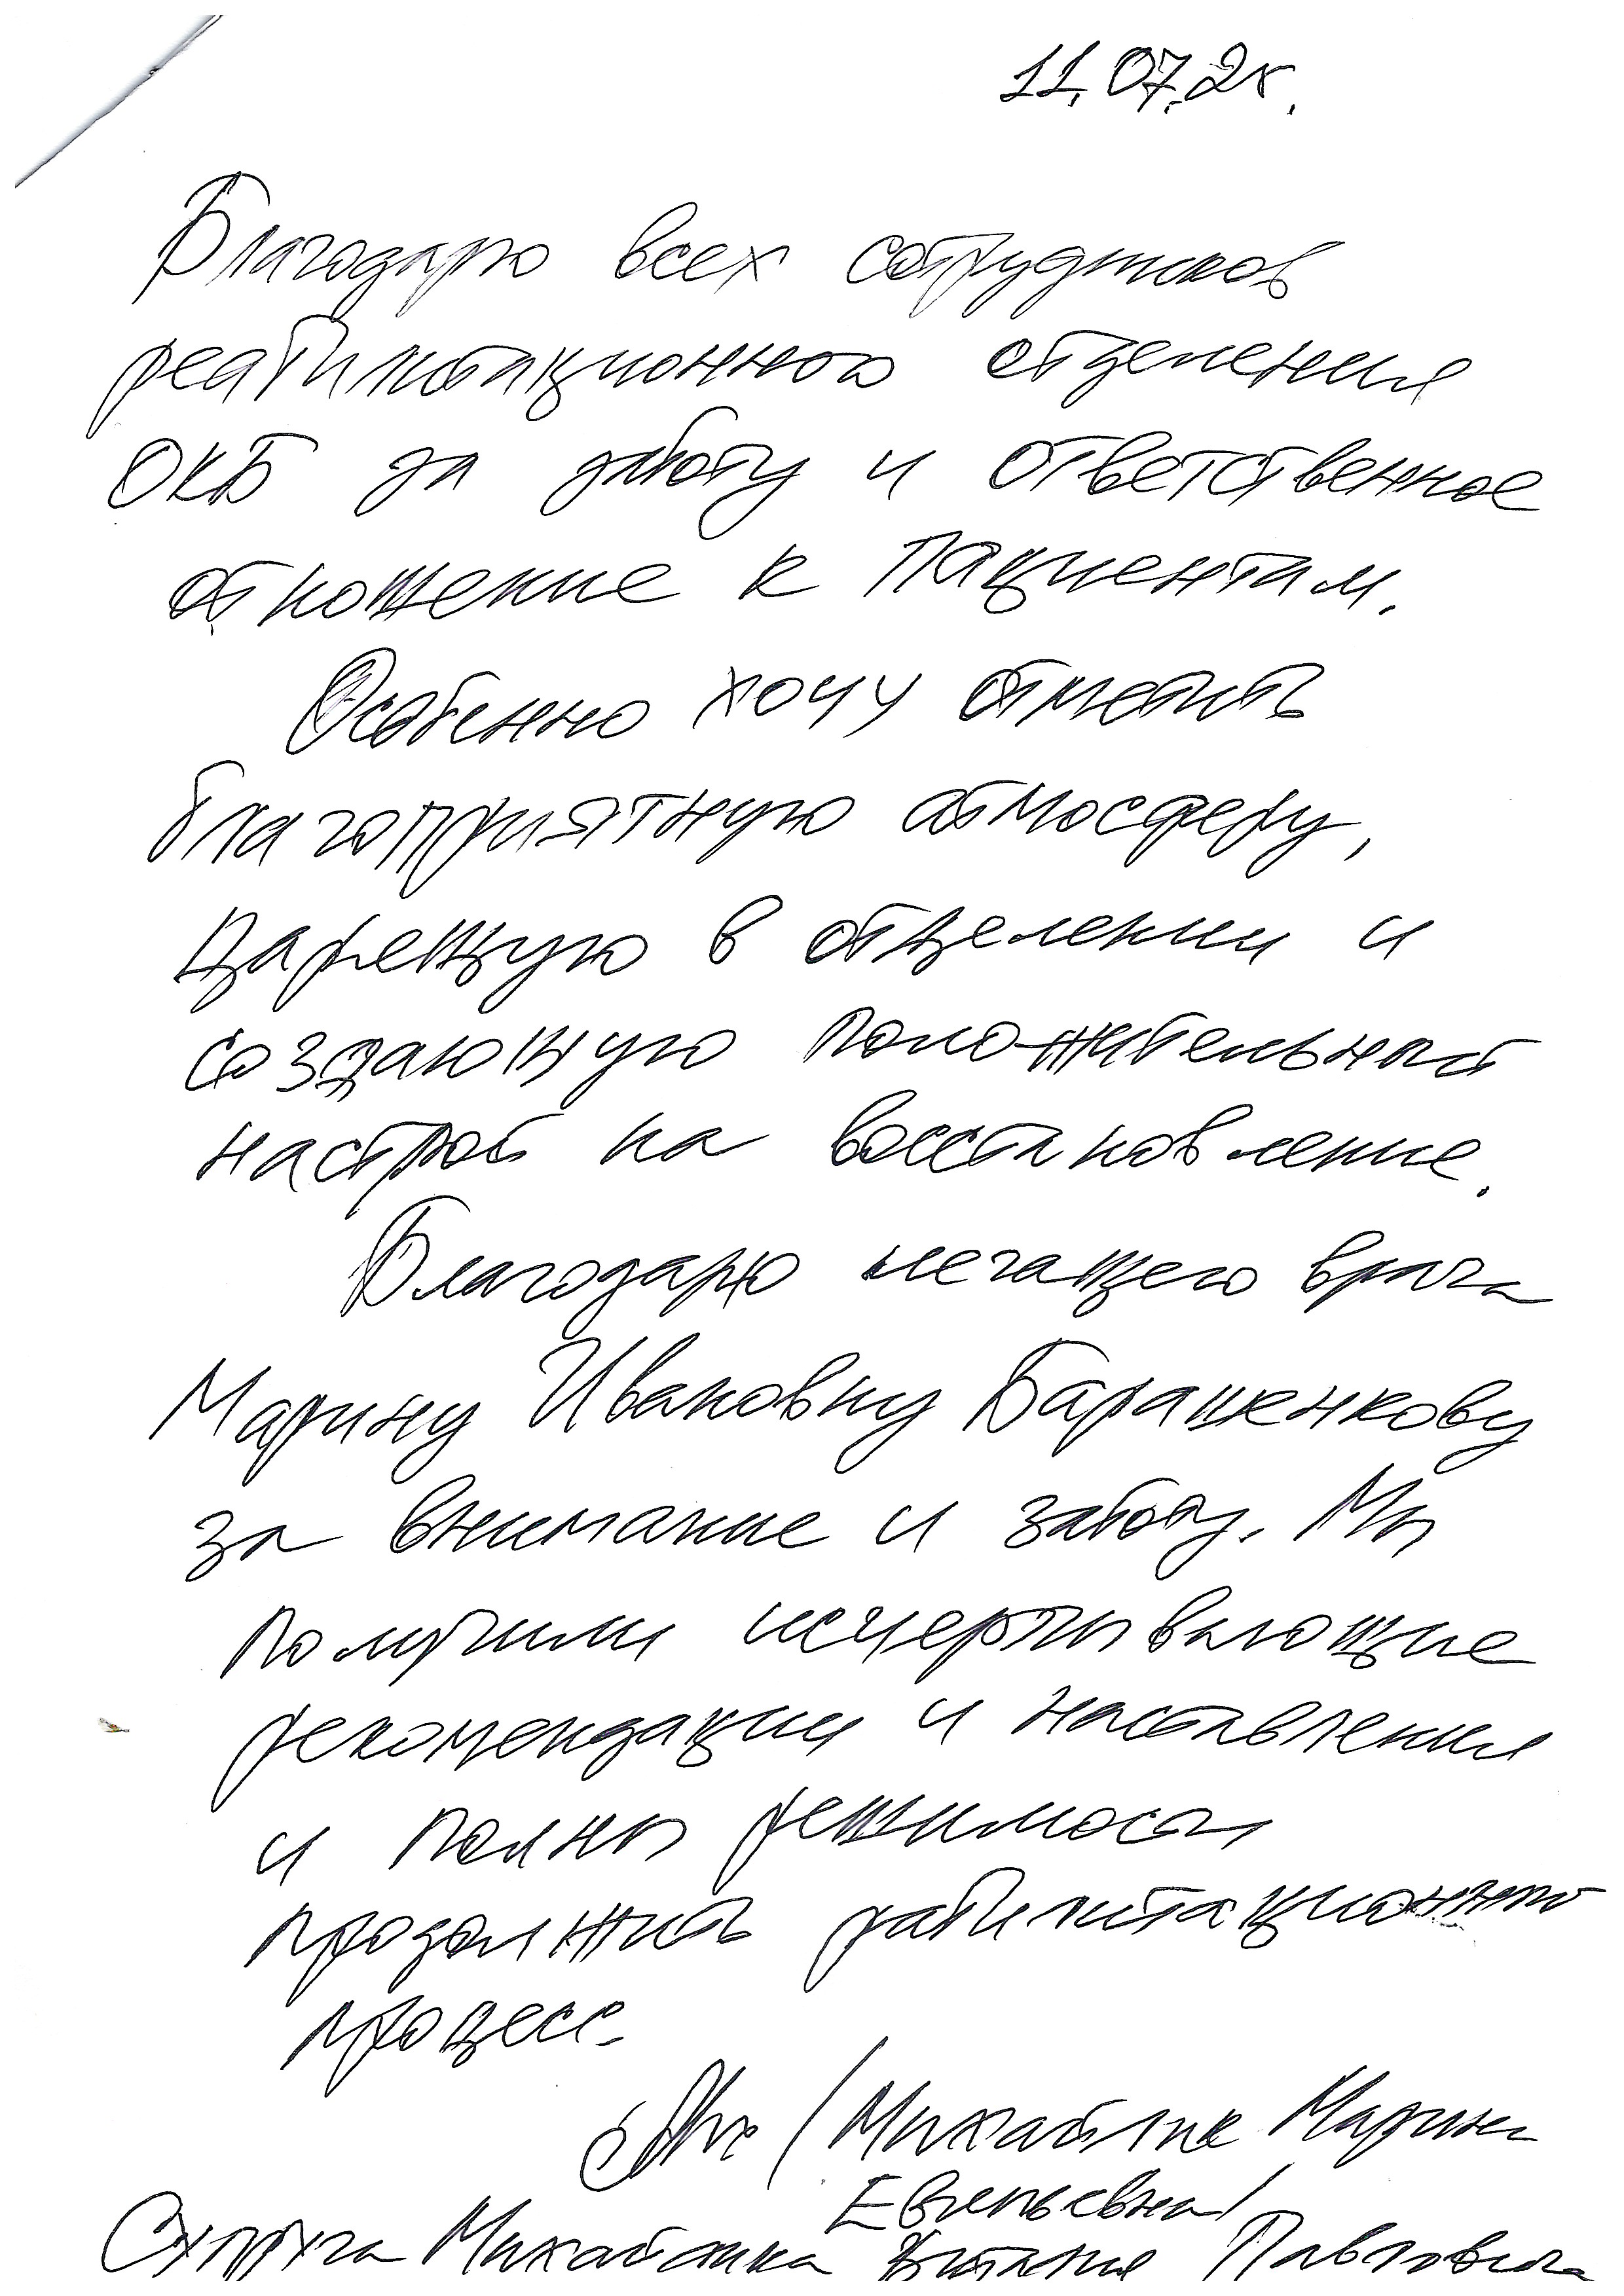 11.07.25.
Благодарю всех сотрудников
реабилитационного отделения
ОКБ за заботу и ответственное
отношение к пациентам.
Особенно хочу отметить
благоприятную атмосферу,
царящую в отделении и
создающую положительный
настрой на восстановление.
Благодарю лечащего врача
Марину Ивановну Барашенкову
за внимание и заботу. Мы
получили исчерпывающие
рекомендации и наставления
и полны решимости
продолжить реабилитационный
процесс.
/Михайлик Марина
Евгеньевна/
Супруга Михайлика Виталия Павловича